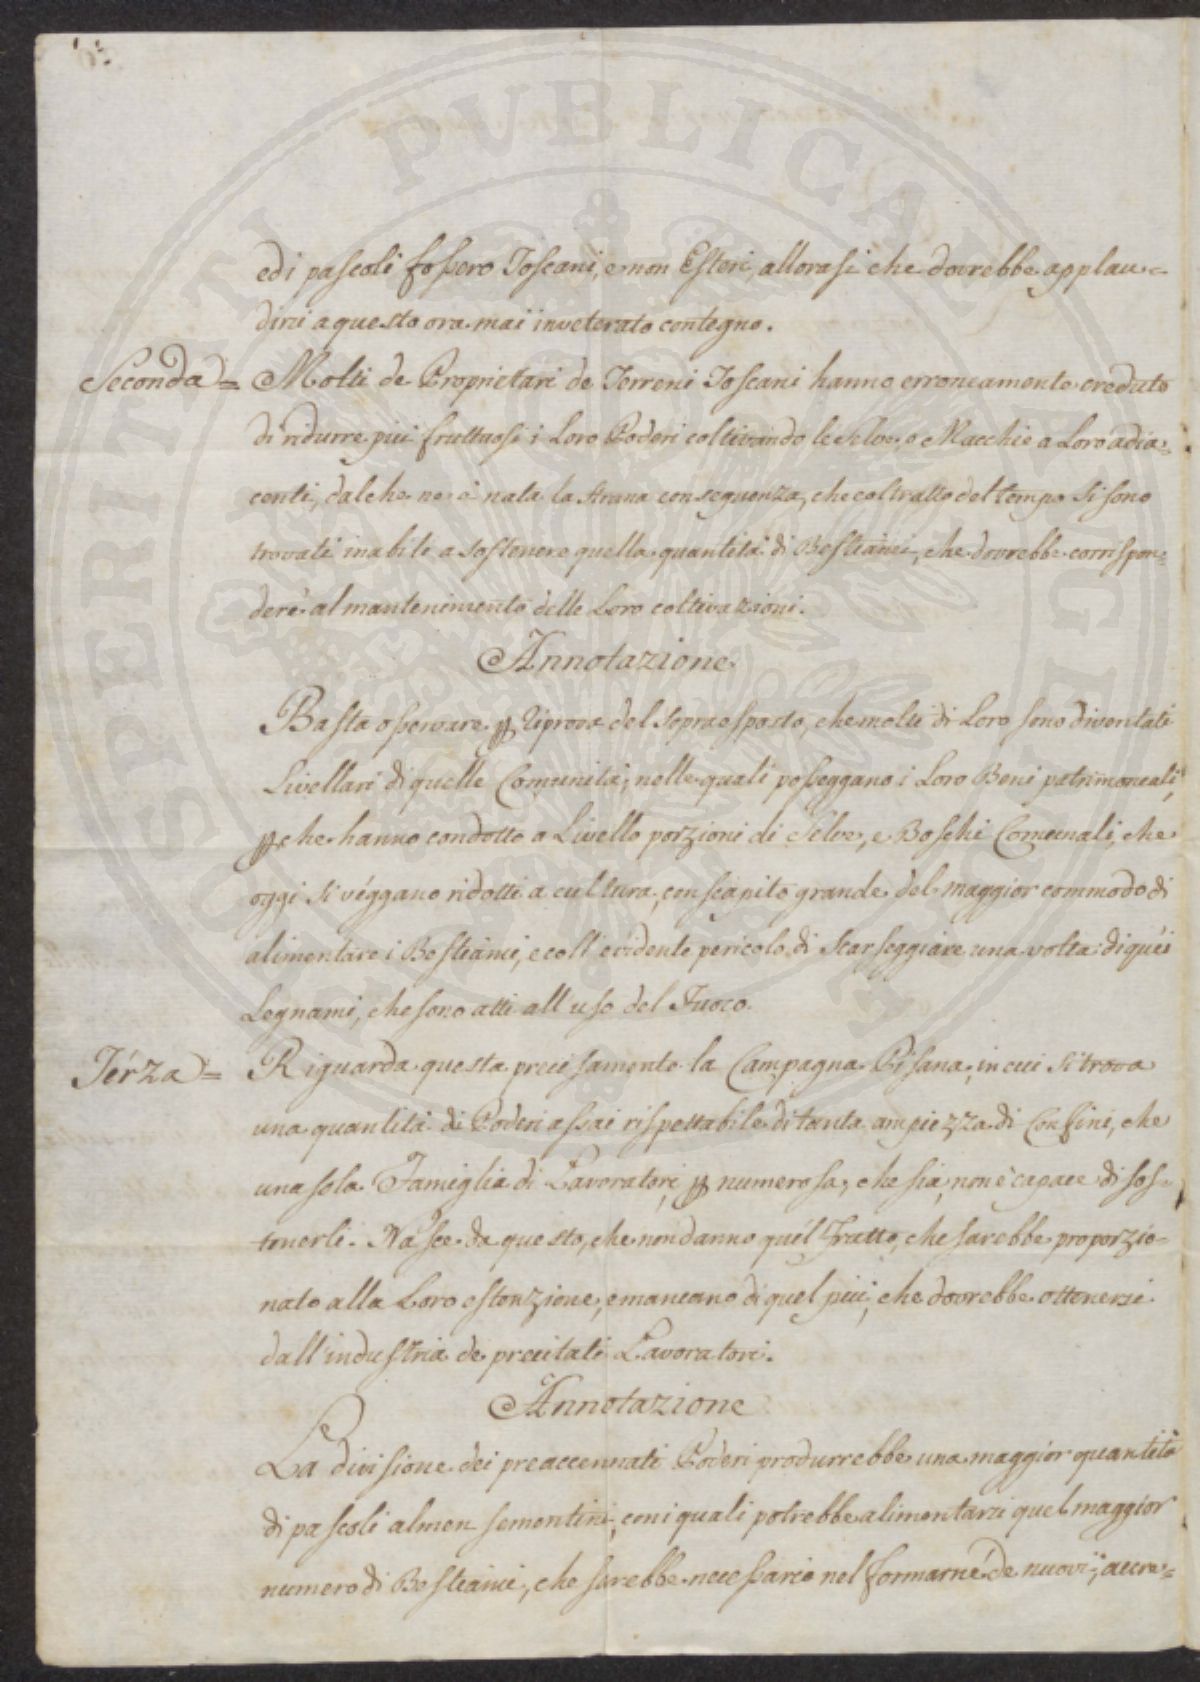 SPERITATI PUBLICAE AUGENDAE
ed i pascoli fossero Toscani, e non Esteri, allora si che dovrebbe applau=
dirsi a questo ora mai inveterato contegno.
Seconda = Molti de Proprietari de Terreni Toscani hanno erroneamente creduto
di ridurre più fruttuosi i Loro Poderi coltivando le Selve, e Macchie a Loro adia=
centi, dal che ne è nata la strana conseguenza, che col tratto del tempo si sono
trovati inabili a sostenere quella quantità di Bestiami, che dovrebbe corrispon=
dere al mantenimento delle Loro coltivazioni.
Annotazione
Basta osservare ꝑ riprova del sopra esposto, che molti di Loro sono diventati
Livellari di quelle Comunità, nelle quali posseggano i Loro Beni patrimoneali,
ꝑche hanno condotto a Livello porzioni di Selve, e Boschi Comunali, che
oggi si véggano ridotti a cultura, con scapito grande del maggior commodo di
alimentare i Bestiami, e coll'evidente pericolo di scarseggiare una volta di quei
Legnami, che sono atti all'uso del Fuoco.
Térza = Riguarda questa precisamente la Campagna Pisana, in cui si trova
una quantità di Poderi assai rispettabile di tanta ampiezza di Confini, che
una sola Famiglia di Lavoratori, ꝑ numerosa, che sia, non è capace di sos=
tenerli. Násce da questo, che non danno quél Frutto, che sarebbe proporzio=
nato alla Loro estenzione, e mancano di quel più, che dovrebbe ottenersi
dall'industria de precitati Lavoratori.
Annotazione
La divisione dei preaccennati Poderi produrrebbe una maggior quantità
di pascoli almen sementini, con i quali potrebbe alimentarsi quel maggior
numero di Bestiami, che sarebbe necessario nel formarne de nuovi; accre=